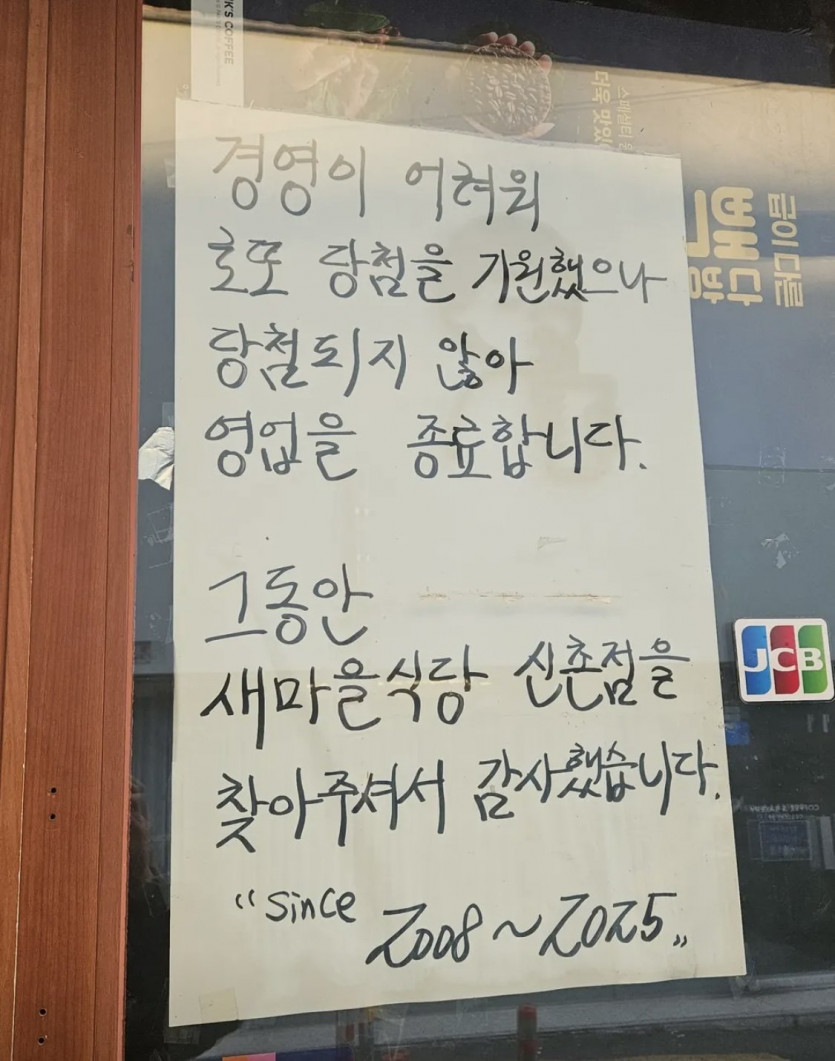 경영이 어려워
로또 당첨을 기원했으나
당첨되지 않아
영업을 종료합니다.
그동안
새마을식당 신촌점을
찾아주셔서 감사했습니다.
"since 2008~2025"
JCB
K'S COFFEE
스페셜티
더욱 맛있
빽다방